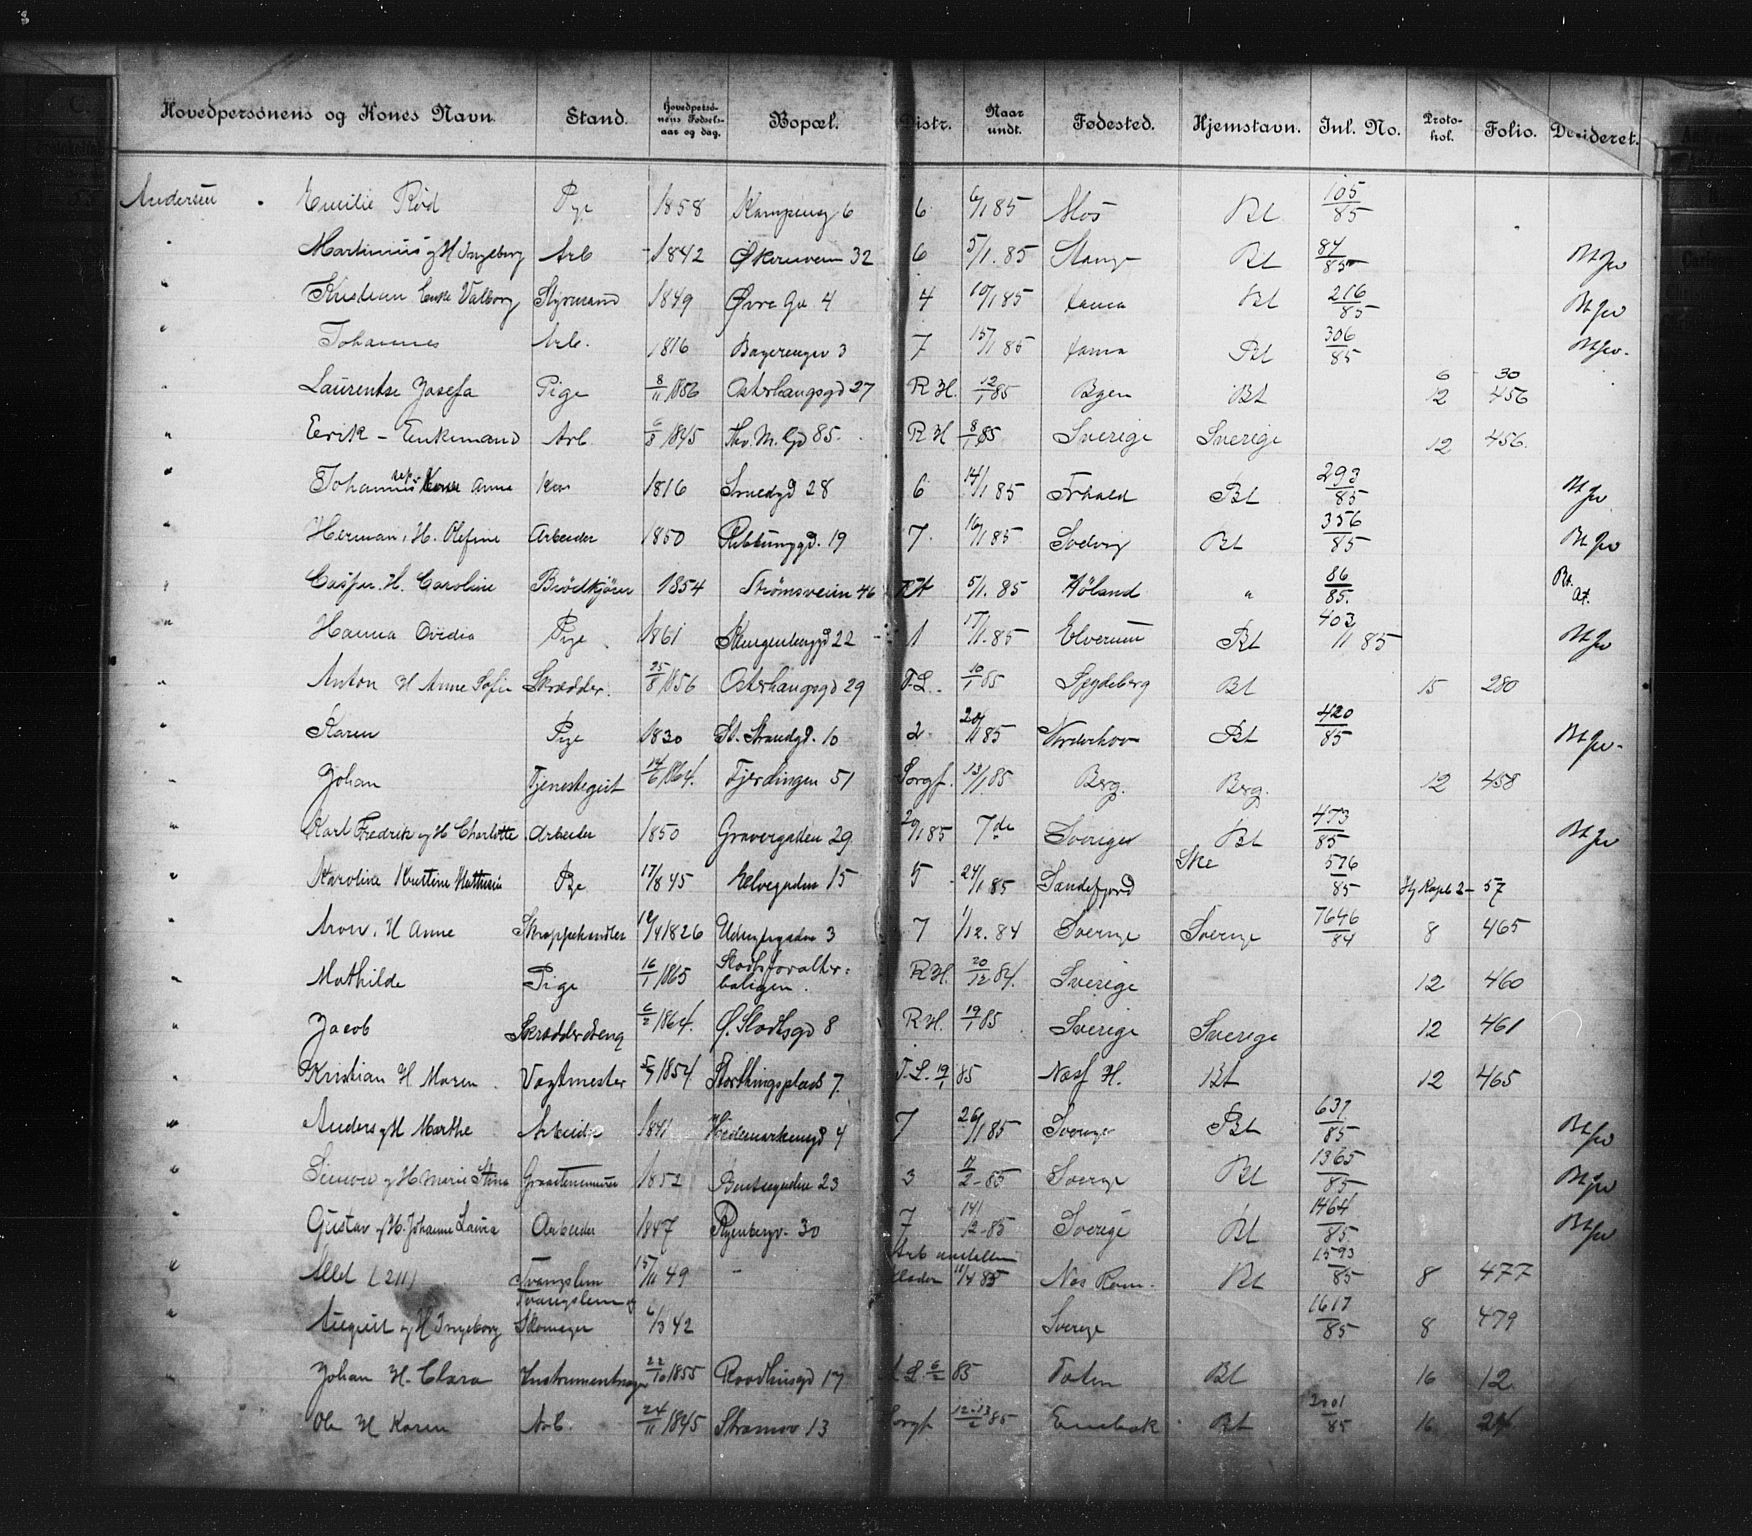 Hovedpersonens og Kones Navn. Stand. Hovedpersonens Fødselsaar og dag. Bopæl. Distr. Naar undt. Fødested. Hjemstavn. Inl. No. Protokol. Folio. Desideret.
Andersen Emilie Rød Pige 1858 Kampengd 6 6 6/1 85 Mos Bt 105/85
" Martinius og H Ingeborg Arb 1842 Økernveien 32 6 5/1 85 Stange Bt 84/85 Bt Jw
" Kristian Enke Valborg Styrmand 1849 Øvre Gd 4 4 10/1 85 Bt 216/85 Bt Jw
" Johannes Arb. 1816 3 7 15/1 85 Bt 306/85 Bt Jw.
" Laurentse Josefa Pige 8/11 1856 Osterhaugsgd 27 R H. 12/1 85 Byen Bt 6 12 30 456
" Erik - Enkemand Arb. 6/8 1845 Thv. M. Gd 85. R H 8/1 85 Sverige Sverige 12 456.
" Anna 1816 Smedgd 28 6 14/1 85 Bt 293/85 Bt Jw
" Herman, H. Olefine Arbeider 1850 19 7. 16/1 85 Svelvig Bt 356/85 Bt Jw
" Casper. H. Caroline Brødkjører 1854 Strømsveien 46 RH 5/1. 85 Høland " 86/85. Bt. At.
" Hanna Ovidia Pige 1861 22 1 17/1. 85 Elverum Bt 403/11 85 Bt Jw
" Anton H Anne Sofie Skrædder. 25/8 1856 Osterhaugsgd 29 T. L. 10/1 85 Spydeberg Bt 15 280
" Karen Pige 1830 St. Strandgd. 10 2 20/1 85 Norderhov Bt 420/85 Bt Jw.
" Johan Tjenestegut 14/6 1864. Fjerdingen 51 Sorgf. 13/1 85 Berg. Berg. 12 458
" Karl Fredrik og H Charlotte Arbeider 1850 Gravergaden 29. 20/1 85 7de Sverige Bt 473/85 Bt Jw
" Karoline Kristine Mathea Pige 17/8 45 Elvegaden 15 5 24/1 85 Sandefjord Ske 576/85 Hj Kapt 2 - 57
" Aron. H Anne Skrappehandler 1826 3 7 1/12. 84 Sverige Sverige 7646/84 8 465
" Mathilde Pige 16/1 1865 Slotsforvalter- boligen. R H. 20/12 84. Sverige 12 460
" Jacob Skrædderdreng 6/2 1864. Ø. Slotsgd 8 R H. 19/1 85 Sverige Sverige 12 461
" Kristian H Maren Vagtmester 5/7 1854 Storthingsplads 7. T. L. 19/1 85 Næs H. Bt 12 465
" Anders og H Marthe Arbeider 1841 Hedemarkengd 4 7 26/1 85 Sverige Bt 637/85 Bt Jw
" Simon og H Marie Stina Graastensmurer 1852 Bentsegaden 23 3 2 - 85 Sverige Bt 1365/85 Bt Jw
" Gustav og H. Johanne Lovisa Arbeider 1847 Ryenbergv. 30 7 14/2 - 85 Sverige Bt 1464/85 Bt Jw
" Alet (211) Tvangslem 15/11 49 - Arb anstalten 11/4 85 Nes Rom. Bt 1593/85 8 477
" August og H Ingeborg Tvangslem og Skomager 6/3 42 Sverige 1617/85 8 479
" Johan H. Clara Instrumentmager 22/10 1855 Raadhusgd 17 L. 6/2 85 Toten Bt 16 12
" Ole H Karen Arb. 24/11 1845 Strømsv 13 Sorgf 12-13/2 85 Enebak Bt 2001/85 16 24